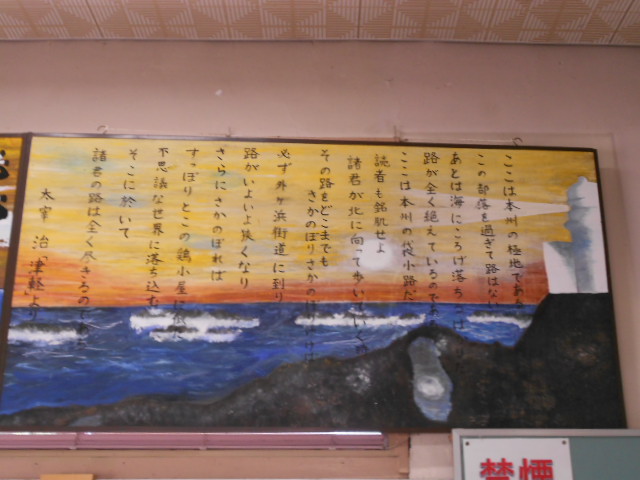 ここは本州の極地である
この部落を過ぎて路はない
あとは海にころげ落ちるばかり
路が全く絶えているのである
ここは本州の袋小路だ
読者も銘肌せよ
諸君が北に向って歩いている時
その路をどこまでも
さかのぼりさかのぼり行けば
必ず外ヶ浜街道に到り
路がいよいよ狭くなり
さらにさかのぼれば
すっぽりとこの鶏小屋に似た
不思議な世界に落ち込む
そこに於いて
諸君の路は全く尽きるのである
太宰 治「津軽」より
禁煙